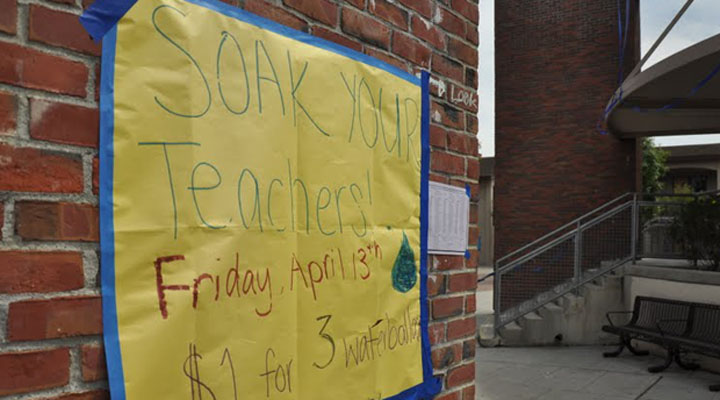 SOAK YOUR
Teachers!
Friday, April 13th
$1 for 3 waterballoo
→ Look